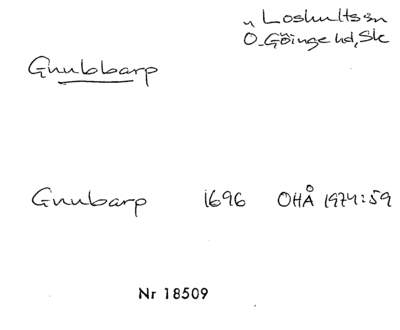 " Loshults sn
Ö-Göinge hd, Sk
Gnubbarp
Gnubarp 1696 OHÅ 1974:59
Nr 18509